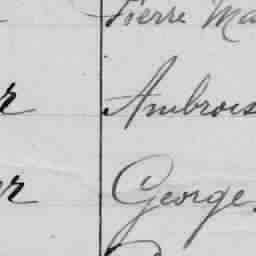 Pierre Ma
r Ambrois
er George